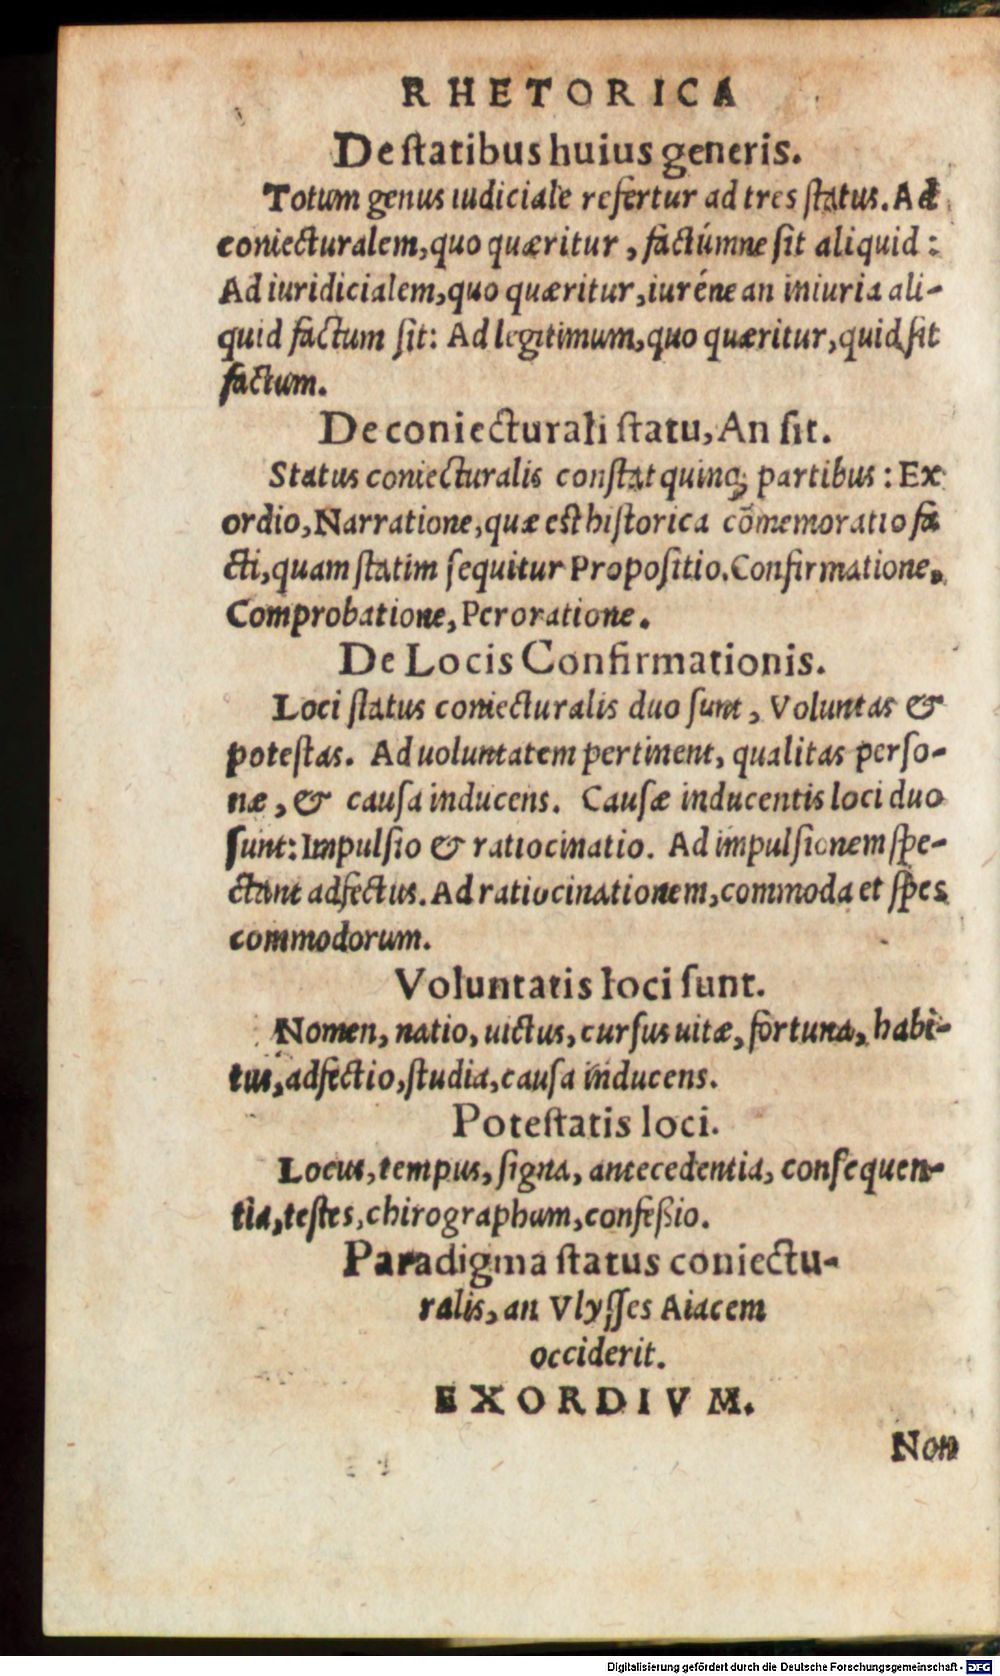 RHETORICA
De ſtatibus huius generis.
Totum genus iudiciale refertur ad tres ſtatus. Ad
coniecturalem, quo quæritur, factúmne ſit aliquid:
Ad iuridicialem, quo quæritur, iuréne an iniuria ali-
quid factum ſit: Ad legitimum, quo quæritur, quid ſit
factum.
De coniecturali ſtatu, An ſit.
Status coniecturalis conſtat quinq; partibus: Ex
ordio, Narratione, quæ est hiſtorica cõmemoratio fa
cti, quam ſtatim ſequitur Propoſitio. Confirmatione,
Comprobatione, Peroratione.
De Locis Confirmationis.
Loci ſtatus coniecturalis duo ſunt, Voluntas &
poteſtas. Ad uoluntatem pertinent, qualitas perſo-
næ, & cauſa inducens. Cauſæ inducentis loci duo
ſunt: Impulſio & ratiocinatio. Ad impulſionem ſpe-
ctant adfectus. Ad ratiocinationem, commoda et ſpes
commodorum.
Voluntatis loci ſunt.
Nomen, natio, uictus, curſus uitæ, fortuna, habi-
tus, adfectio, ſtudia, cauſa inducens.
Poteſtatis loci.
Locus, tempus, ſigna, antecedentia, conſequen-
tia, teſtes, chirographum, confeßio.
Paradigma ſtatus coniectu-
ralis, an Vlyſſes Aiacem
occiderit.
EXORDIVM.
Non
Digitalisierung gefördert durch die Deutsche Forschungsgemeinschaft - DFG